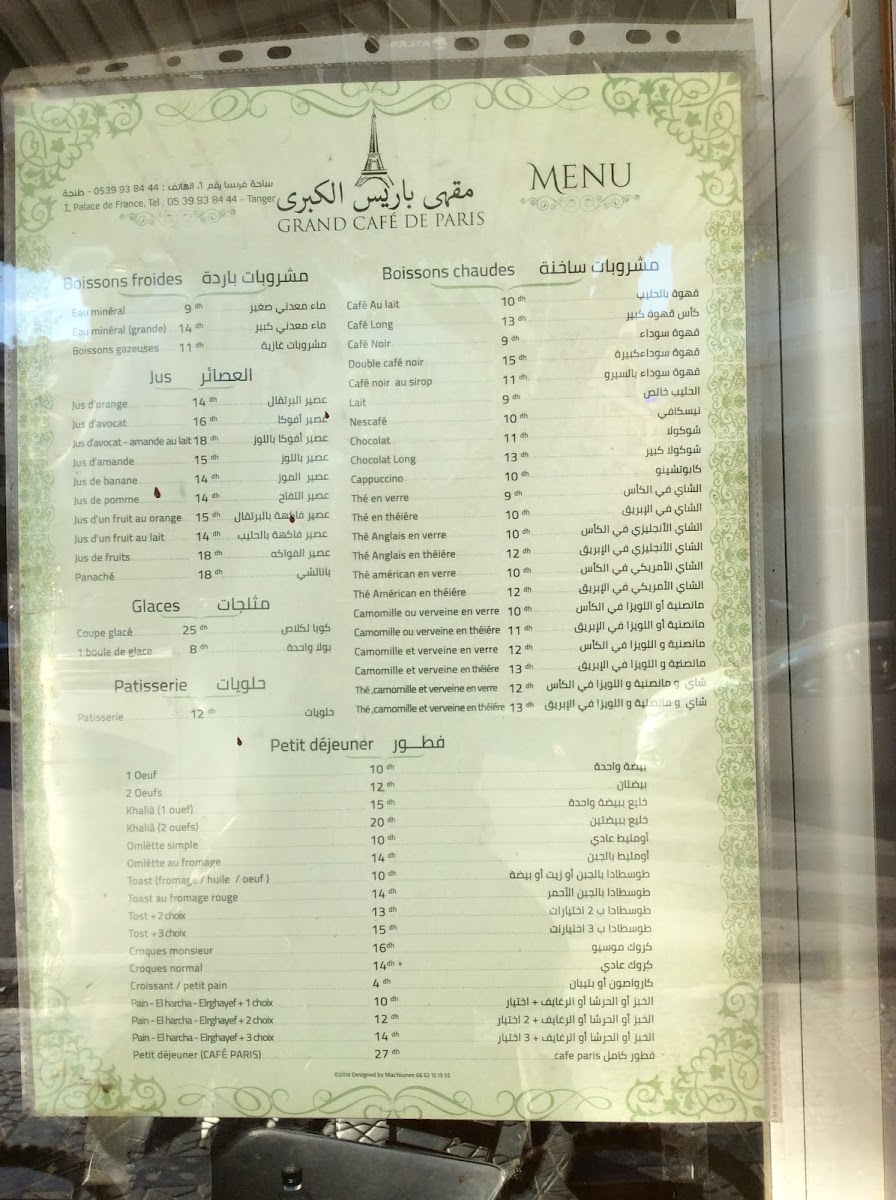 ساحة فرنسا رقم 1، الهاتف : 44 84 93 0539 - طنجة
1, Palace de France, Tel : 05 39 93 84 44 - Tanger
مقهى باريس الكبرى
GRAND CAFÉ DE PARIS
MENU
Boissons froides مشروبات باردة
Eau minéral 9 dh ماء معدني صغير
Eau minéral (grande) 14 dh ماء معدني كبير
Boissons gazeuses 11 dh مشروبات غازية
Jus العصائر
Jus d'orange 14 dh عصير البرتقال
Jus d'avocat 16 dh عصير أفوكا
Jus d'avocat - amande au lait 18 dh عصير أفوكا باللوز
Jus d'amande 15 dh عصير باللوز
Jus de banane 14 dh عصير الموز
Jus de pomme 14 dh عصير التفاح
Jus d'un fruit au orange 15 dh عصير فاكهة بالبرتقال
Jus d'un fruit au lait 14 dh عصير فاكهة بالحليب
Jus de fruits 18 dh عصير الفواكه
Panaché 18 dh باناشي
Glaces مثلجات
Coupe glacé 25 dh كوبا لكلاص
1 boule de glace 8 dh بولا واحدة
Patisserie حلويات
Patisserie 12 dh حلويات
Boissons chaudes مشروبات ساخنة
Café Au lait 10 dh قهوة بالحليب
Café Long 13 dh كأس قهوة كبير
Café Noir 9 dh قهوة سوداء
Double café noir 15 dh قهوة سوداءكبيرة
Café noir au sirop 11 dh قهوة سوداء بالسيرو
Lait 9 dh الحليب خالص
Nescafé 10 dh نيسكافي
Chocolat 11 dh شوكولا
Chocolat Long 13 dh شوكولا كبير
Cappuccino 10 dh كابوتشينو
Thé en verre 9 dh الشاي في الكأس
Thé en théiére 10 dh الشاي في الإبريق
Thé Anglais en verre 10 dh الشاي الأنجليزي في الكأس
Thé Anglais en théiére 12 dh الشاي الأنجليزي في الإبريق
Thé américan en verre 10 dh الشاي الأمريكي في الكأس
Thé Américan en théiére 12 dh الشاي الأمريكي في الإبريق
Camomille ou verveine en verre 10 dh مانصنية أو اللويزا في الكأس
Camomille ou verveine en théiére 11 dh مانصنية أو اللويزا في الإبريق
Camomille et verveine en verre 12 dh مانصنية و اللويزا في الكأس
Camomille et verveine en théiére 13 dh مانصنية و اللويزا في الإبريق
Thé ,camomille et verveine en verre 12 dh شاي و مانصنية و اللويزا في الكأس
Thé ,camomille et verveine en théiére 13 dh شاي و مانصنية و اللويزا في الإبريق
Petit déjeuner فطـــور
1 Oeuf 10 dh بيضة واحدة
2 Oeufs 12 dh بيضتان
Khaliâ (1 ouef) 15 dh خليع ببيضة واحدة
Khaliâ (2 ouefs) 20 dh خليع ببيضتين
Omlétte simple 10 dh أومليط عادي
Omlétte au fromage 14 dh أومليط بالجبن
Toast (fromage / huile / oeuf ) 10 dh طوسطادا بالجبن أو زيت أو بيضة
Toast au fromage rouge 14 dh طوسطادا بالجبن الأحمر
Tost + 2 choix 13 dh طوسطادا ب 2 اختيارات
Tost + 3 choix 15 dh طوسطادا ب 3 اختيارات
Croques monsieur 16 dh كروك موسيو
Croques normal 14 dh كروك عادي
Croissant / petit pain 4 dh كارواصون أو بتيبان
Pain - El harcha - Elrghayef + 1 choix 10 dh الخبز أو الحرشا أو الرغايف + اختيار
Pain - El harcha - Elrghayef + 2 choix 12 dh الخبز أو الحرشا أو الرغايف + 2 اختيار
Pain - El harcha - Elrghayef + 3 choix 14 dh الخبز أو الحرشا أو الرغايف + 3 اختيار
Petit déjeuner (CAFÉ PARIS) 27 dh فطور كامل cafe paris
©2016 Designed by MacYounes 06 62 15 15 55